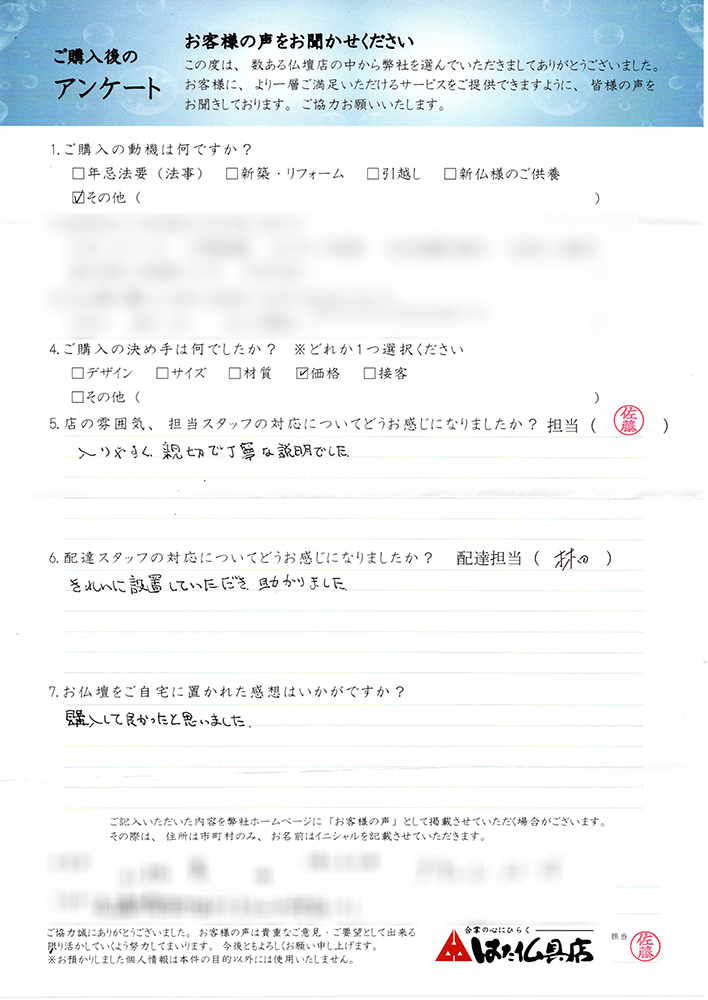 ご購入後の
アンケート
お客様の声をお聞かせください
この度は、数ある仏壇店の中から弊社を選んでいただきましてありがとうございました。
お客様に、より一層ご満足いただけるサービスをご提供できますように、皆様の声を
お聞きしております。ご協力お願いいたします。
1.ご購入の動機は何ですか?
□年忌法要(法事) □新築・リフォーム □引越し □新仏様のご供養
☑その他( )
4.ご購入の決め手は何でしたか? ※どれか1つ選択ください
□デザイン □サイズ □材質 ☑価格 □接客
□その他( )
5.店の雰囲気、担当スタッフの対応についてどうお感じになりましたか?担当(佐藤)
入りやすく、親切で丁寧な説明でした
6.配達スタッフの対応についてどうお感じになりましたか? 配達担当( )
きれいに設置していただき、助かりました
7.お仏壇をご自宅に置かれた感想はいかがですか?
購入して良かったと思いました.
ご記入いただいた内容を弊社ホームページに「お客様の声」として掲載させていただく場合がございます。
その際は、住所は市町村のみ、お名前はイニシャルを記載させていただきます。
ご協力誠にありがとうございました。お客様の声は貴重なご意見・ご要望として出来る
限り活かしていくよう努力してまいります。今後ともよろしくお願い申し上げます。
※お預かりしました個人情報は本件の目的以外には使用いたしません。
合掌の心にひらく
はた仏具店
担当 佐藤